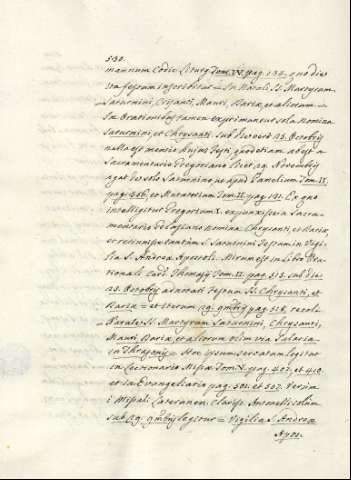 530.
mannum Codic. Liturg. Tom. IV. pag. 132. quo dies
ita festum inscribitur = In Natali SS. Martyrum
Saturnini, Crisanti, Mauri, Dariæ, et aliorum =
In Orationibus tamen exprimuntur sola nomina
Saturnini, et Chrysanti. Sub hoc vero 25. Octobris
nulla est mentio hujus Festi, quod etiam abest a
Sacramentario Gregoriano licet 29. Novembris
agat de solo Saturnino, ut apud Pamelium Tom. II.
pag. 366. et Muratorium Tom. II. pag. 141. Ex quo
intelligitur Gregorium X. expunxisse a Sacra-
mentario Gelasiano nomina Chrysanti, et Dariæ,
et retinuisse tantum S. Saturnini Festum in Vigi-
lia S. Andreæ Apostoli. Mirum est in Libro Ora-
tionali Card. Thomasj Tom. II. pag. 513. sub die
25. Octobris adnotari Festum SS. Chrysanti, et
Daria = et iterum 29. 9mbris pag. 518. recoli
Natale SS. Martyrum Saturnini, Chrysanti,
Mauri, Dariæ, et aliorum olim via Salaria
in Thrasonis = Hoc ipsum servatum legitur
in Lectionario Missæ Tom. V. pag. 407. et 410.
et in Evangeliario pag. 501. et 507. Verum
i Missali Lateranen. Clariss. Antonelli solum
sub 29. 9mbris legitur = Vigilia S. Andreæ
Apos.